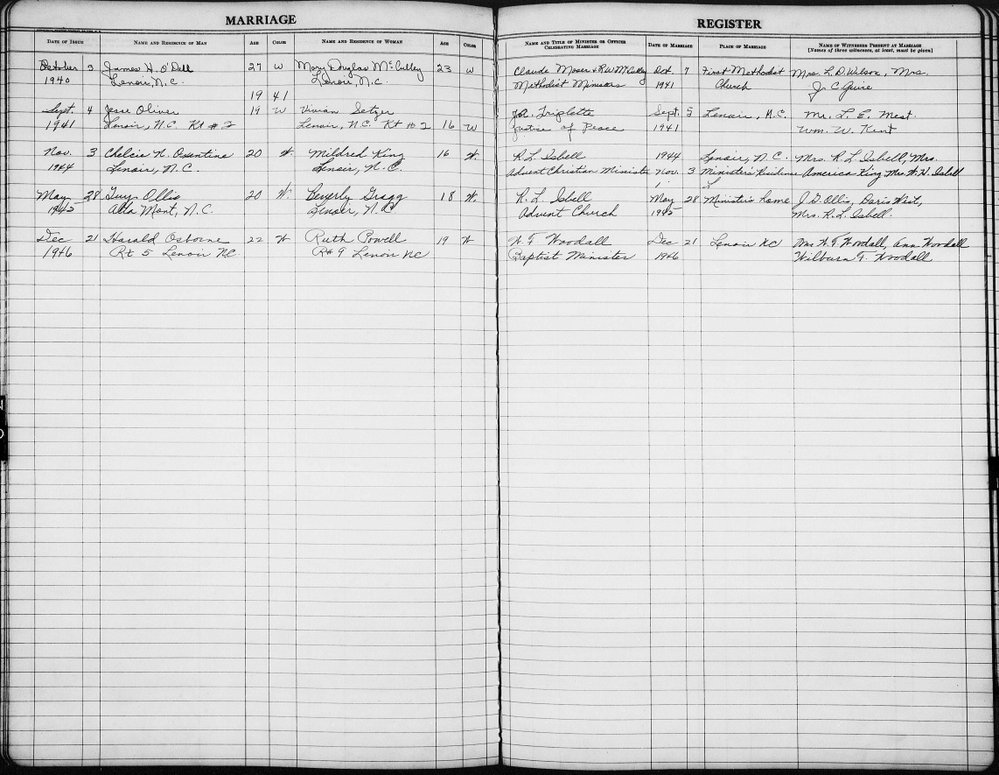 MARRIAGE REGISTER
DATE OF ISSUE NAME AND RESIDENCE OF MAN AGE COLOR NAME AND RESIDENCE OF WOMAN AGE COLOR NAME AND TITLE OF MINISTER OR OFFICER CELEBRATING MARRIAGE DATE OF MARRIAGE PLACE OF MARRIAGE NAME OF WITNESSES PRESENT AT MARRIAGE [Names of three witnesses, at least, must be given]
October 3 James H. O'Dell 27 W Mary Douglas McCulley 23 W Claude Moser & R W McCulley Oct. 7 First Methodist Mrs. L. D. Wilson, Mrs.
1940 Lenoir, N.C. Lenoir, N.C. Methodist Ministers 1941 Church J C
1941
Sept. 4 Jesse Oliver 19 W Vivian Setzer J.A. Triplette Sept. 5 Lenoir, N.C. Mr. L. E. Mast
1941 Lenoir, N.C. Rt # 2 Lenoir, N.C. Rt # 2 16 W Justice of Peace 1941 Wm. W. Kent
Nov. 3 Chelcie N. 20 W. Mildred King 16 W. R. L. Isbell 1944 Lenoir, N.C. Mrs. R. L. Isbell, Mrs.
1944 Lenoir, N.C. Lenoir, N.C. Advent Christian Minister Nov. 3 Minister's Residence America King, Mrs. W. H. Isbell
May 28 Guy Ollis 20 W. Beverly Gragg 18 W. R. L. Isbell May 28 Minister's Home J. G. Ollis, Doris West,
1945 Alta Mont, N.C. Lenoir, N.C. Advent Church 1945 Mrs. R. L. Isbell
Dec 21 Harald Osborne 22 W Ruth Powell 19 W W. F. Woodall Dec 21 Lenoir NC Mrs W. F. Woodall, Ann Woodall
1946 Rt 5 Lenoir NC Rt 9 Lenoir NC Baptist Minister 1946 Wilburn F. Woodall